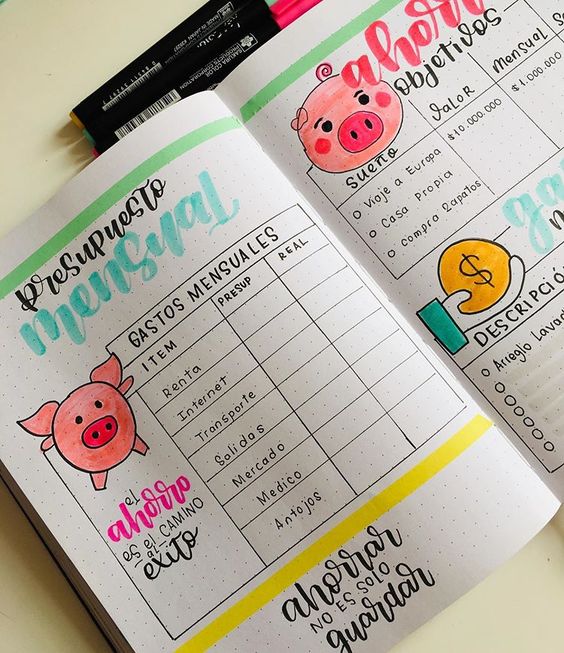 MADE IN JAPAN
SAKURA COLOR
PRODUCTS CORPORATION
presupuesto
mensual
GASTOS MENSUALES
ITEM PRESUP REAL
Renta
Internet
Transporte
Salidas
Mercado
Medico
Antojos
el
ahorro
es el CAMINO
al
exito
ahorrar
NO ES SOLO
guardar
ahorr
objetivos
SUEÑO VALOR mensual
Viaje a Europa $10.000.000 $1.000.000
Casa Propia
compra Zapatos
$
DESCRIPCIÓ
Arreglo Lavad